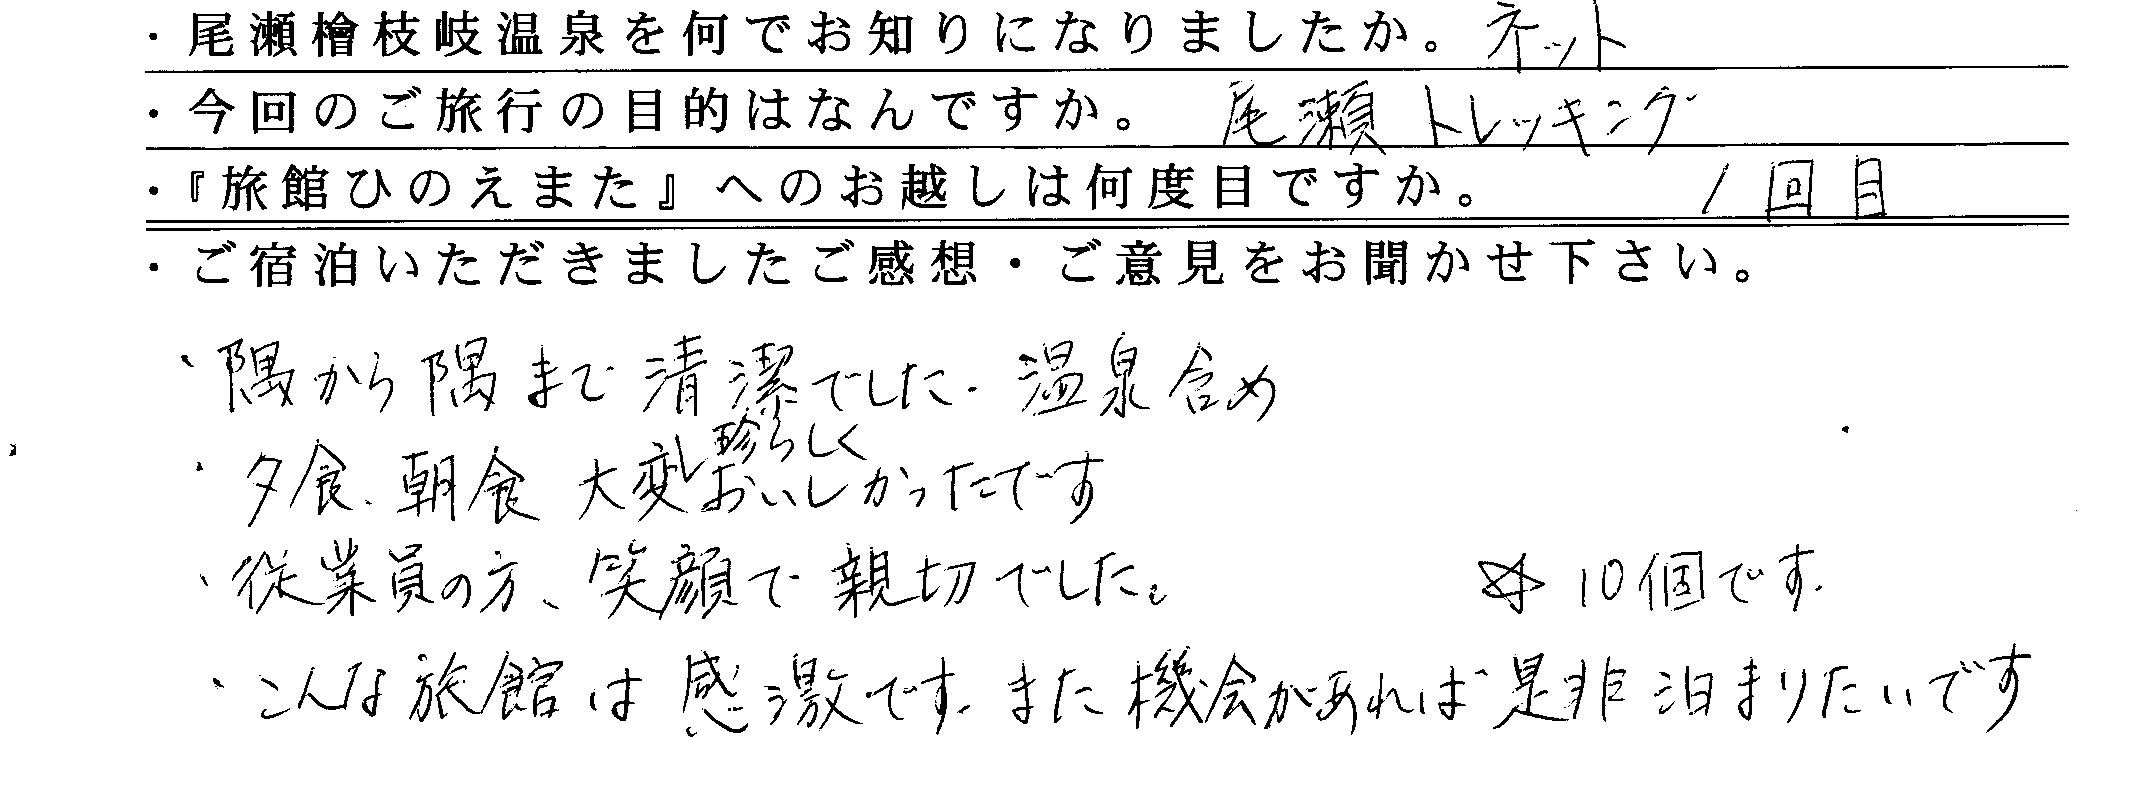 ・尾瀬檜枝岐温泉を何でお知りになりましたか。ネット
・今回のご旅行の目的はなんですか。 尾瀬トレッキング
・『旅館ひのえまた』へのお越しは何度目ですか。 1回目
・ご宿泊いただきましたご感想・ご意見をお聞かせ下さい。
・隅から隅まで清潔でした。温泉含め
珍らしく
・夕食、朝食 大変おいしかったです
・従業員の方、笑顔で親切でした。 ☆10個です。
・こんな旅館は感激です。また機会があれば是非泊まりたいです